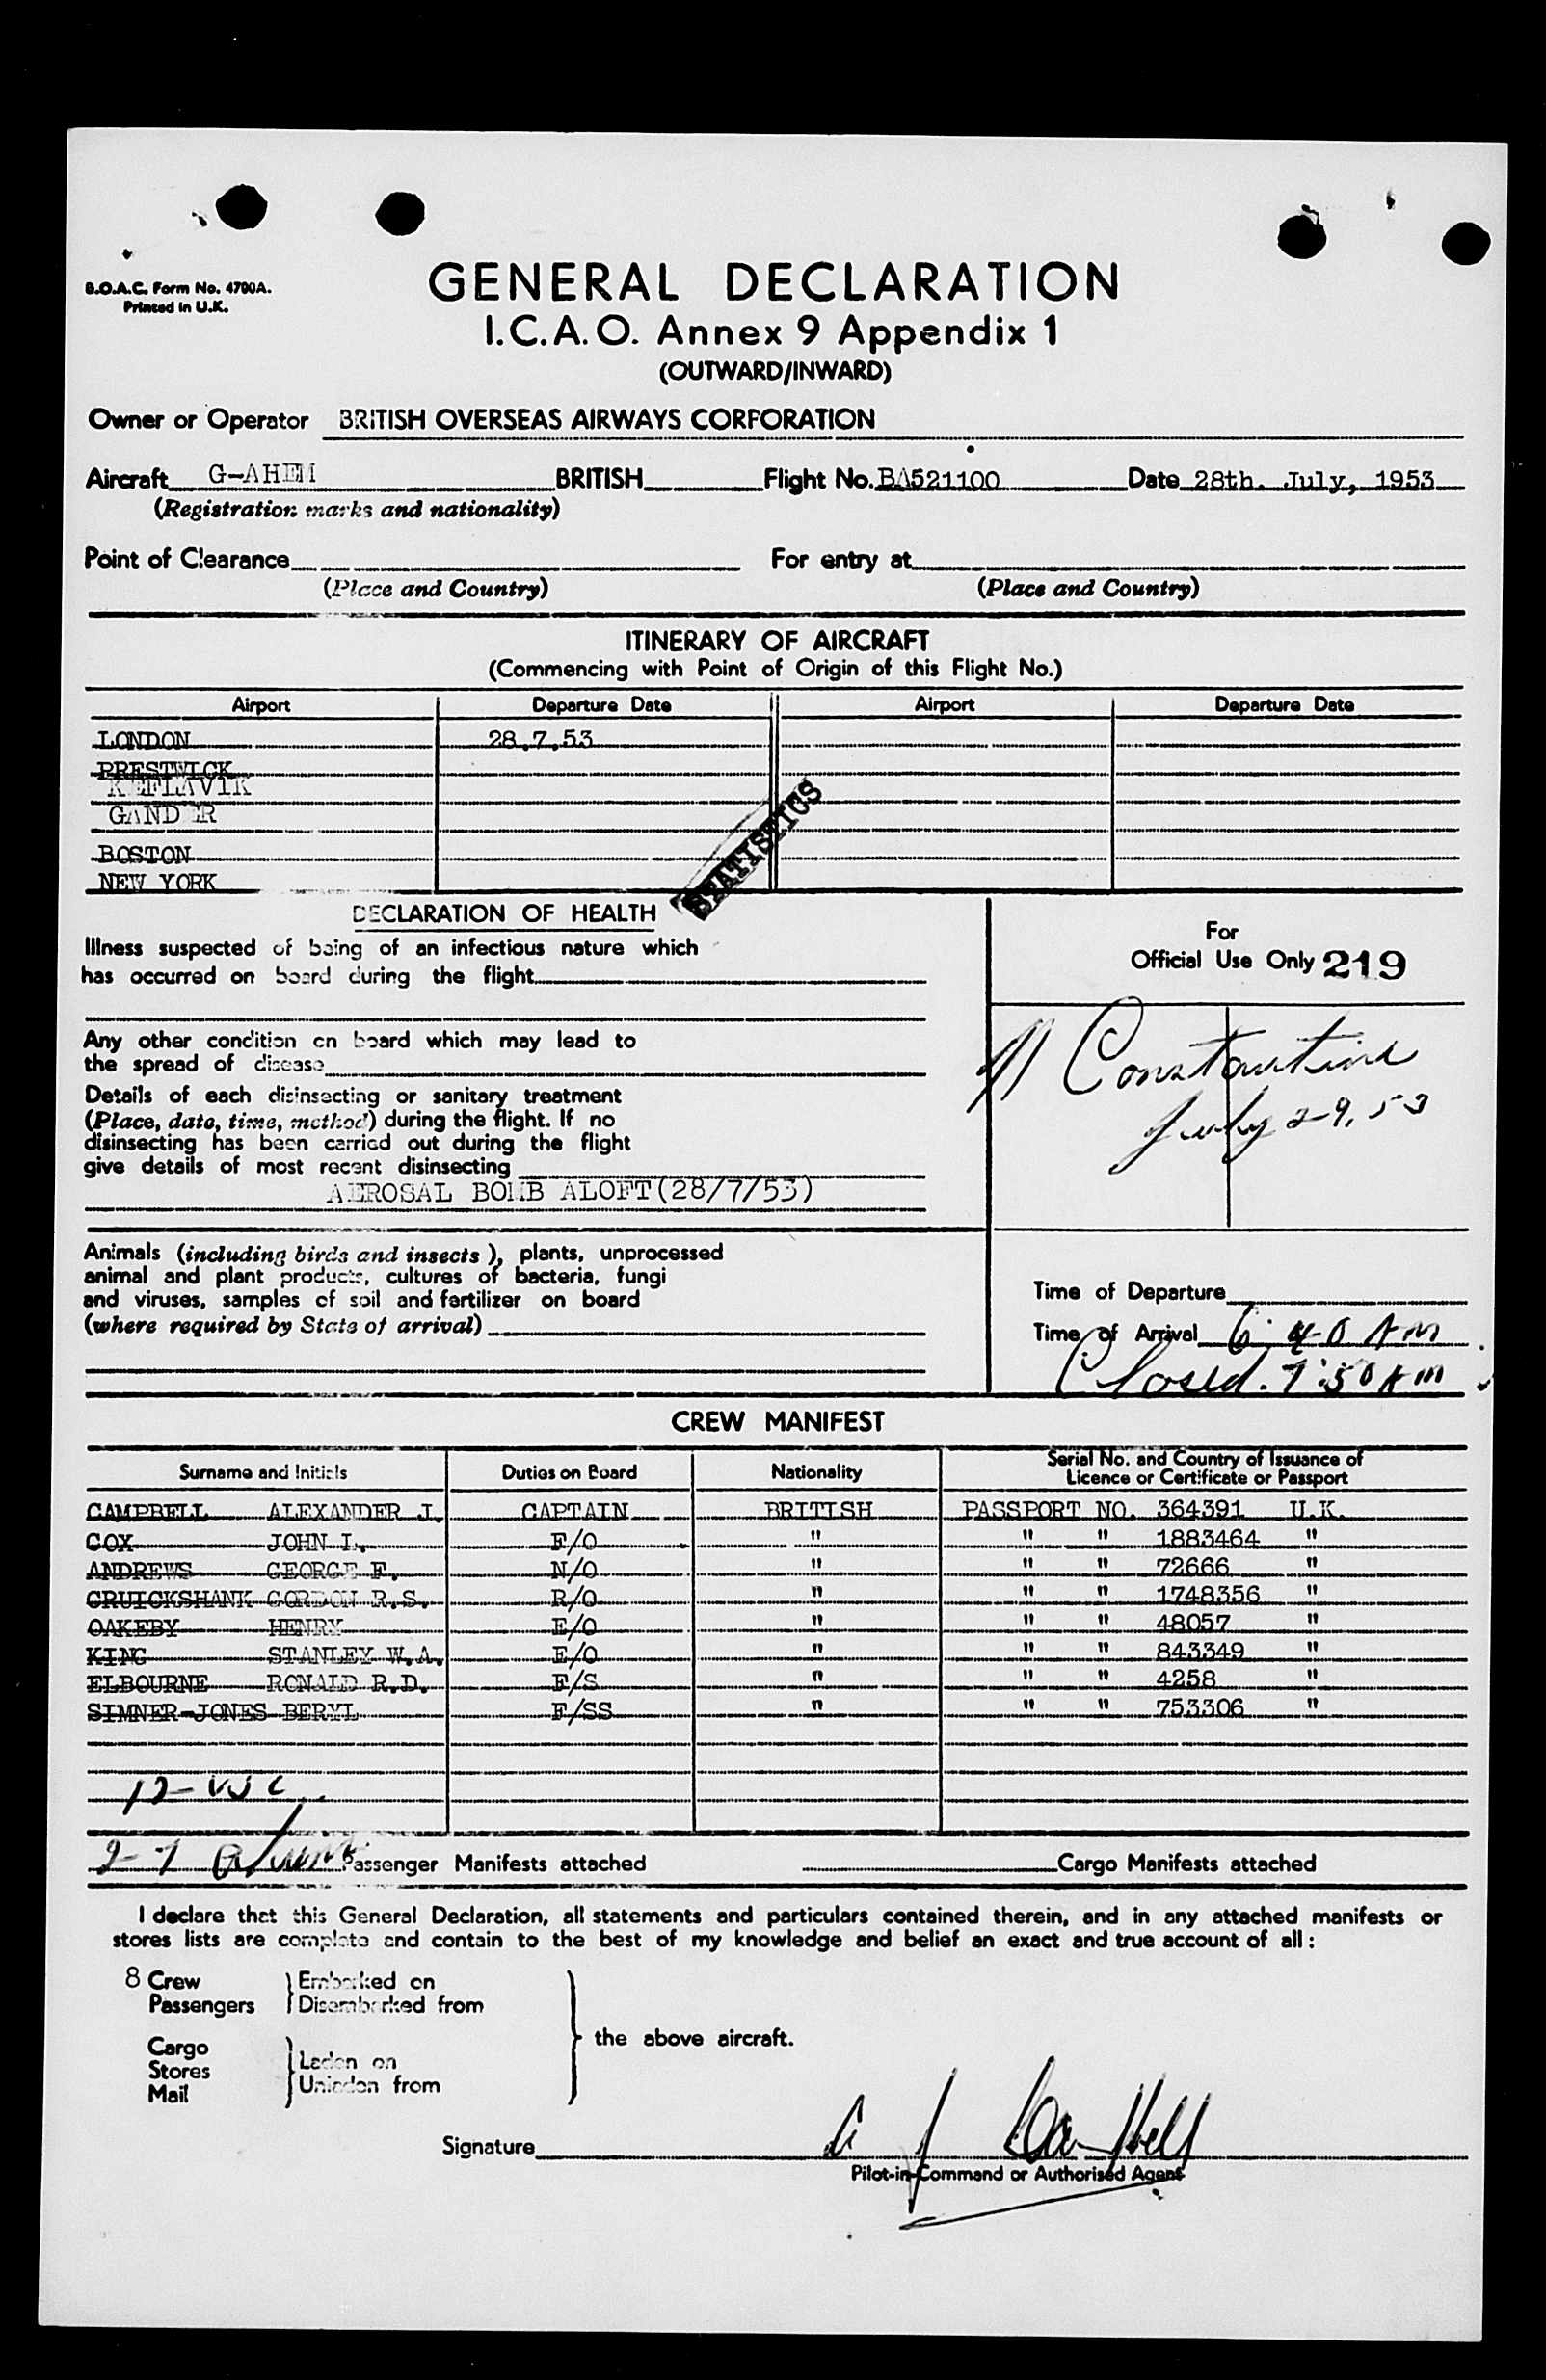 B.O.A.C. Form No. 4700A.
Printed in U.K.
GENERAL DECLARATION
I.C.A.O. Annex 9 Appendix 1
(OUTWARD/INWARD)
Owner or Operator BRITISH OVERSEAS AIRWAYS CORPORATION
Aircraft G-AHEM BRITISH Flight No. BA521100 Date 28th. July, 1953
(Registration marks and nationality)
Point of Clearance For entry at
(Place and Country) (Place and Country)
ITINERARY OF AIRCRAFT
(Commencing with Point of Origin of this Flight No.)
Airport Departure Date Airport Departure Date
LONDON 28.7.53
PRESTWICK
KEFLAVIK
GANDER
BOSTON
NEW YORK
STATISTICS
DECLARATION OF HEALTH
Illness suspected of being of an infectious nature which
has occurred on board during the flight
Any other condition on board which may lead to
the spread of disease
Details of each disinsecting or sanitary treatment
(Place, date, time, method) during the flight. If no
disinsecting has been carried out during the flight
give details of most recent disinsecting
AEROSAL BOMB ALOFT(28/7/53)
For
Official Use Only 219
Constantine
July 29, 53
Animals (including birds and insects), plants, unprocessed
animal and plant products, cultures of bacteria, fungi
and viruses, samples of soil and fertilizer on board
(where required by State of arrival)
Time of Departure
Time of Arrival 6:40 AM
Closed. 7:50 AM
CREW MANIFEST
Surname and Initials Duties on Board Nationality Serial No. and Country of Issuance of Licence or Certificate or Passport
CAMPBELL ALEXANDER J. CAPTAIN BRITISH PASSPORT NO. 364391 U.K.
COX JOHN I. F/O " " " 1883464 "
ANDREWS GEORGE F. N/O " " " 72666 "
CRUICKSHANK GORDON R.S. R/O " " " 1748356 "
OAKEBY HENRY E/O " " " 48057 "
KING STANLEY W.A. E/O " " " 843349 "
ELBOURNE RONALD R.D. F/S " " " 4258 "
SIMNER-JONES BERYL F/SS " " " 753306 "
12-USC
27 Passenger Manifests attached Cargo Manifests attached
I declare that this General Declaration, all statements and particulars contained therein, and in any attached manifests or
stores lists are complete and contain to the best of my knowledge and belief an exact and true account of all:
8 Crew Embarked on
Passengers Disembarked from
the above aircraft.
Cargo
Stores Laden on
Mail Unladen from
Signature A J Campbell
Pilot-in-Command or Authorised Agent